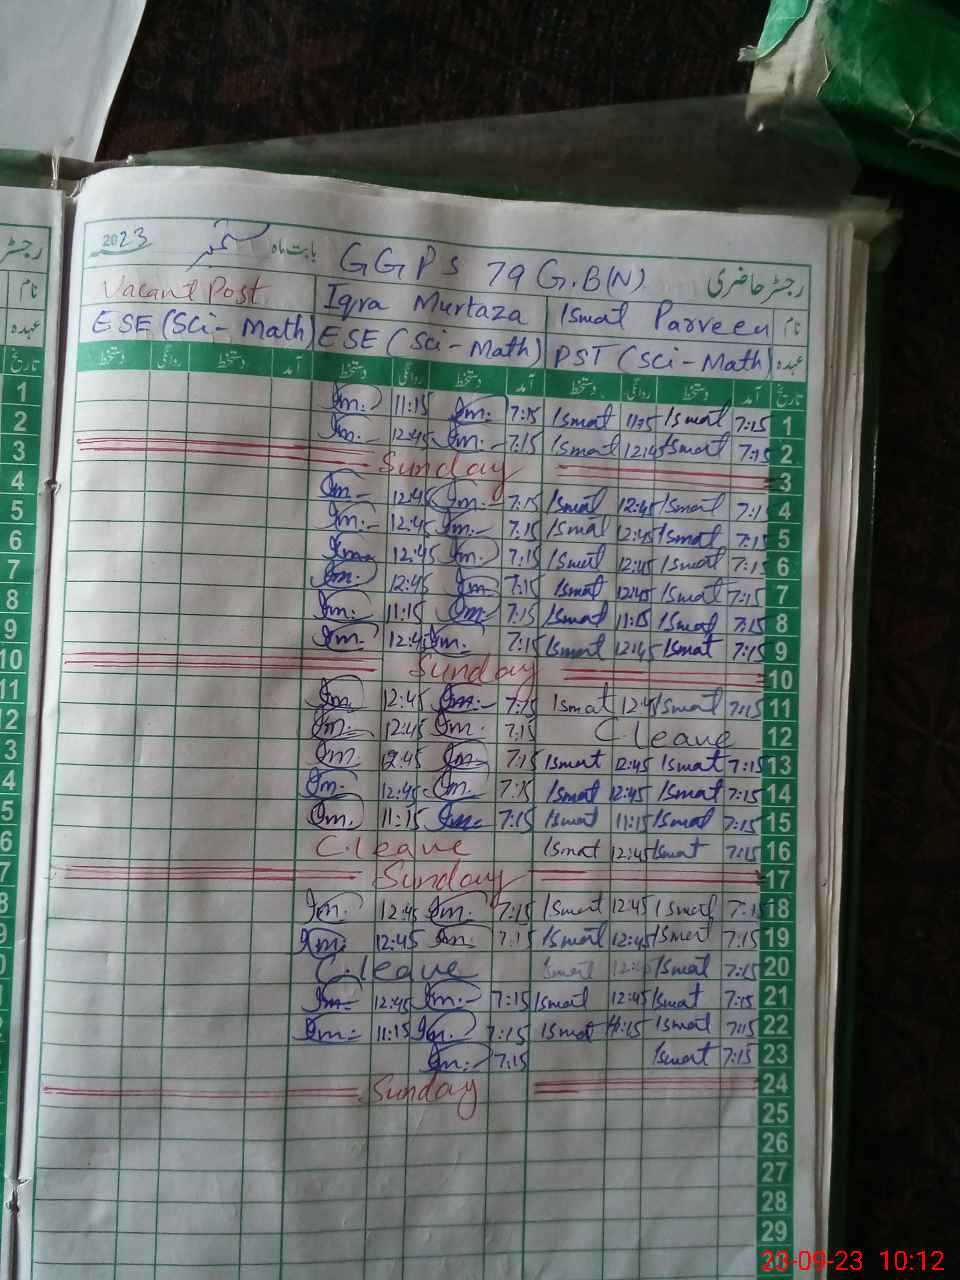 2023 ستمبر بابت ماہ GGPS 79 G.B(N) رجسٹر حاضری
Vacant Post Iqra Murtaza Ismat Parveen نام
ESE (Sci-Math) ESE (Sci-Math) PST (Sci-Math) عہدہ
دستخط روانگی دستخط آمد دستخط روانگی دستخط آمد دستخط روانگی دستخط آمد تاریخ
1 Im. 11:15 Im. 7:15 Ismat 11:15 Ismat 7:15 1
2 Im. 12:45 Im. 7:15 Ismat 12:45 Ismat 7:15 2
3 Sunday 3
4 Im. 12:45 Im. 7:15 Ismat 12:45 Ismat 7:15 4
5 Im. 12:45 Im. 7:15 Ismat 12:45 Ismat 7:15 5
6 Im. 12:45 Im. 7:15 Ismat 12:45 Ismat 7:15 6
7 Im. 12:45 Im. 7:15 Ismat 12:45 Ismat 7:15 7
8 Im. 11:15 Im. 7:15 Ismat 11:15 Ismat 7:15 8
9 Im. 12:45 Im. 7:15 Ismat 12:45 Ismat 7:15 9
10 Sunday 10
11 Im. 12:45 Im. 7:15 Ismat 12:45 Ismat 7:15 11
12 Im. 12:45 Im. 7:15 C.leave 12
3 Im. 12:45 Im. 7:15 Ismat 12:45 Ismat 7:15 13
4 Im. 12:45 Im. 7:15 Ismat 12:45 Ismat 7:15 14
5 Im. 11:15 Im. 7:15 Ismat 11:15 Ismat 7:15 15
6 C.leave Ismat 12:45 Ismat 7:15 16
7 Sunday 17
8 Im. 12:45 Im. 7:15 Ismat 12:45 Ismat 7:15 18
9 Im. 12:45 Im. 7:15 Ismat 12:45 Ismat 7:15 19
0 C.leave Ismat 12:45 Ismat 7:15 20
Im. 12:45 Im. 7:15 Ismat 12:45 Ismat 7:15 21
Im. 11:15 Im. 7:15 Ismat 11:15 Ismat 7:15 22
Im. 7:15 Ismat 7:15 23
Sunday 24
25
26
27
28
29
23-09-23 10:12